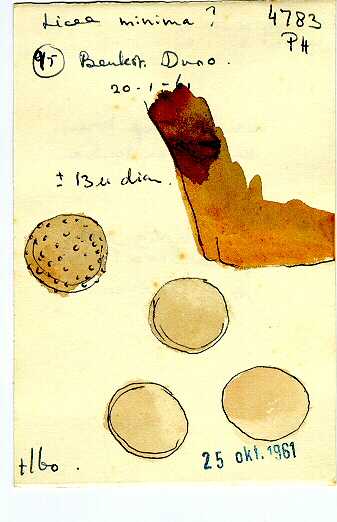 Licea minima ?
4783
PH
95 Beukst. Duno.
20-1-61
± 13 µ diam.
+160.
25 okt. 1961